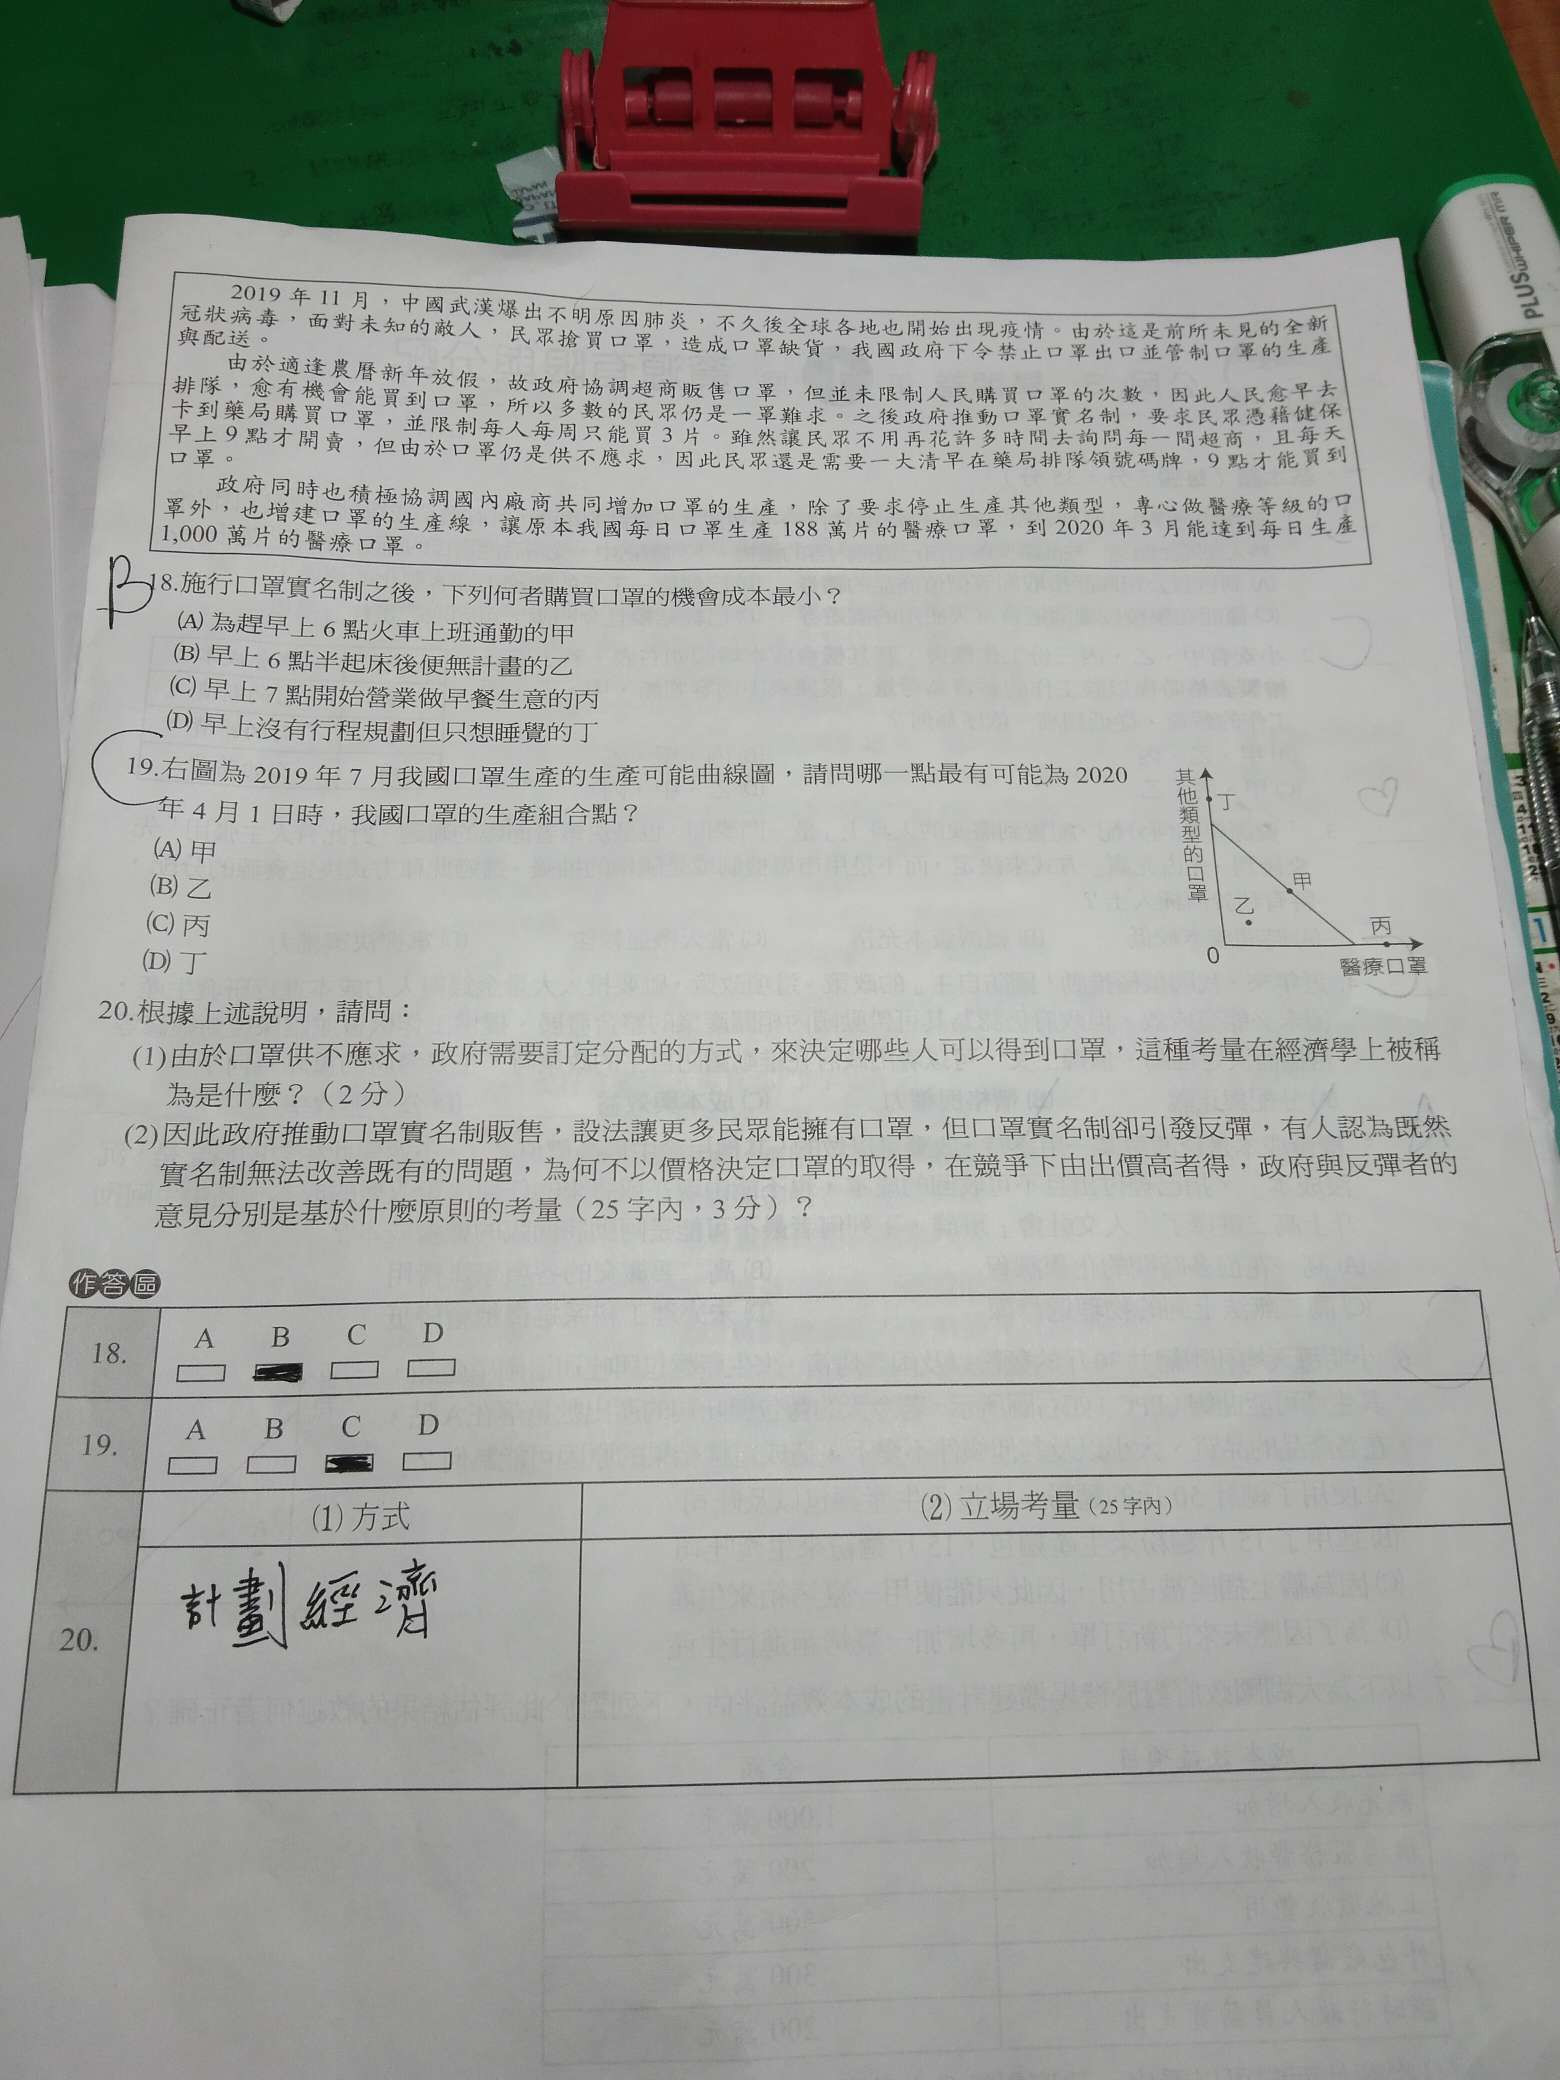 2019 年 11 月，中國武漢爆出不明原因肺炎，不久後全球各地也開始出現疫情。由於這是前所未見的全新
冠狀病毒，面對未知的敵人，民眾搶買口罩，造成口罩缺貨，我國政府下令禁止口罩出口並管制口罩的生產
與配送。
由於適逢農曆新年放假，故政府協調超商販售口罩，但並未限制人民購買口罩的次數，因此人民愈早去
排隊，愈有機會能買到口罩，所以多數的民眾仍是一罩難求。之後政府推動口罩實名制，要求民眾憑藉健保
卡到藥局購買口罩，並限制每人每周只能買 3 片。雖然讓民眾不用再花許多時間去詢問每一間超商，且每天
早上 9 點才開賣，但由於口罩仍是供不應求，因此民眾還是需要一大清早在藥局排隊領號碼牌，9 點才能買到
口罩。
政府同時也積極協調國內廠商共同增加口罩的生產，除了要求停止生產其他類型，專心做醫療等級的口
罩外，也增建口罩的生產線，讓原本我國每日口罩生產 188 萬片的醫療口罩，到 2020 年 3 月能達到每日生產
1,000 萬片的醫療口罩。
B 18.施行口罩實名制之後，下列何者購買口罩的機會成本最小？
(A) 為趕早上 6 點火車上班通勤的甲
(B) 早上 6 點半起床後便無計畫的乙
(C) 早上 7 點開始營業做早餐生意的丙
(D) 早上沒有行程規劃但只想睡覺的丁
C 19.右圖為 2019 年 7 月我國口罩生產的生產可能曲線圖，請問哪一點最有可能為 2020
年 4 月 1 日時，我國口罩的生產組合點？
(A) 甲
(B) 乙
(C) 丙
(D) 丁
其他類型的口罩
丁
甲
乙
丙
0
醫療口罩
20.根據上述說明，請問：
(1)由於口罩供不應求，政府需要訂定分配的方式，來決定哪些人可以得到口罩，這種考量在經濟學上被稱
為是什麼？（2 分）
(2)因此政府推動口罩實名制販售，設法讓更多民眾能擁有口罩，但口罩實名制卻引發反彈，有人認為既然
實名制無法改善既有的問題，為何不以價格決定口罩的取得，在競爭下由出價高者得，政府與反彈者的
意見分別是基於什麼原則的考量（25 字內，3 分）？
作答區
18. A B C D
19. A B C D
20. (1) 方式 (2) 立場考量（25 字內）
計劃經濟
PLUS WHIPER MR